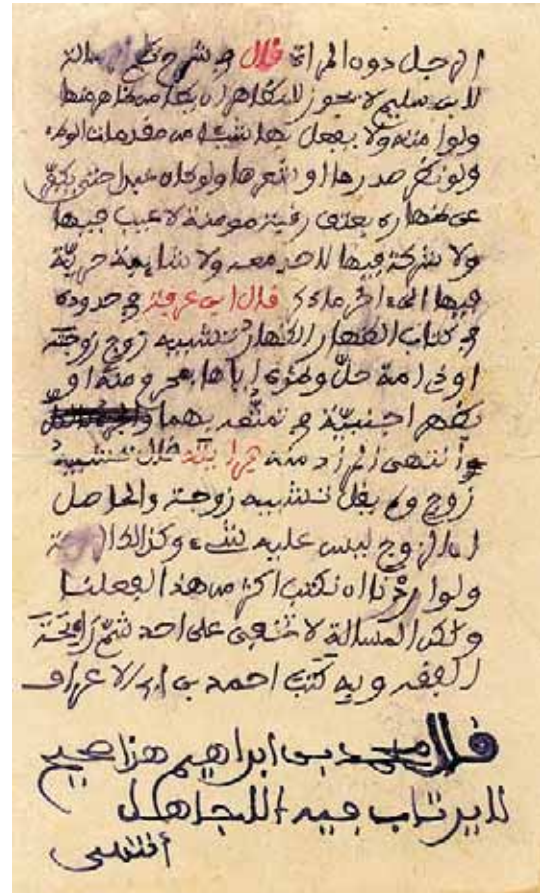 الرجل دون المراة قال في شرح
لابن سليم لا يجوز للمظاهر ان
ولا يفعل بها شيئا من مقدمات
صدرها او شعرها ولو كان حتى يكفر
عن ظهاره بعتق رقبة مومنة لا عيب فيها
ولا شركة فيها لاحد معه ولا شايبة حرية
فيها الى اخر قال ابن عرفة في حدوده
في كتاب الظهار الظهار تشبيه زوج زوجته
او ذي امة حل وطئه اياها بمحرم منه او
بظهر اجنبية في تمتعه بهما
انتهى المراد منه قال تشبيه
زوج ولم يقل تشبيه زوجة والحاصل
ان الزوج ليس عليه شيء وكذالك
ولو اردنا ان نكتب اكثر من هذا لفعلنا
ولكن المسالة لا تخفى على احد شم رايحة
الفقه وبه كتب احمد بن
قال محمد بن ابراهيم هذا صحيح
لا يرتاب فيه الا الجاهل
انتهى